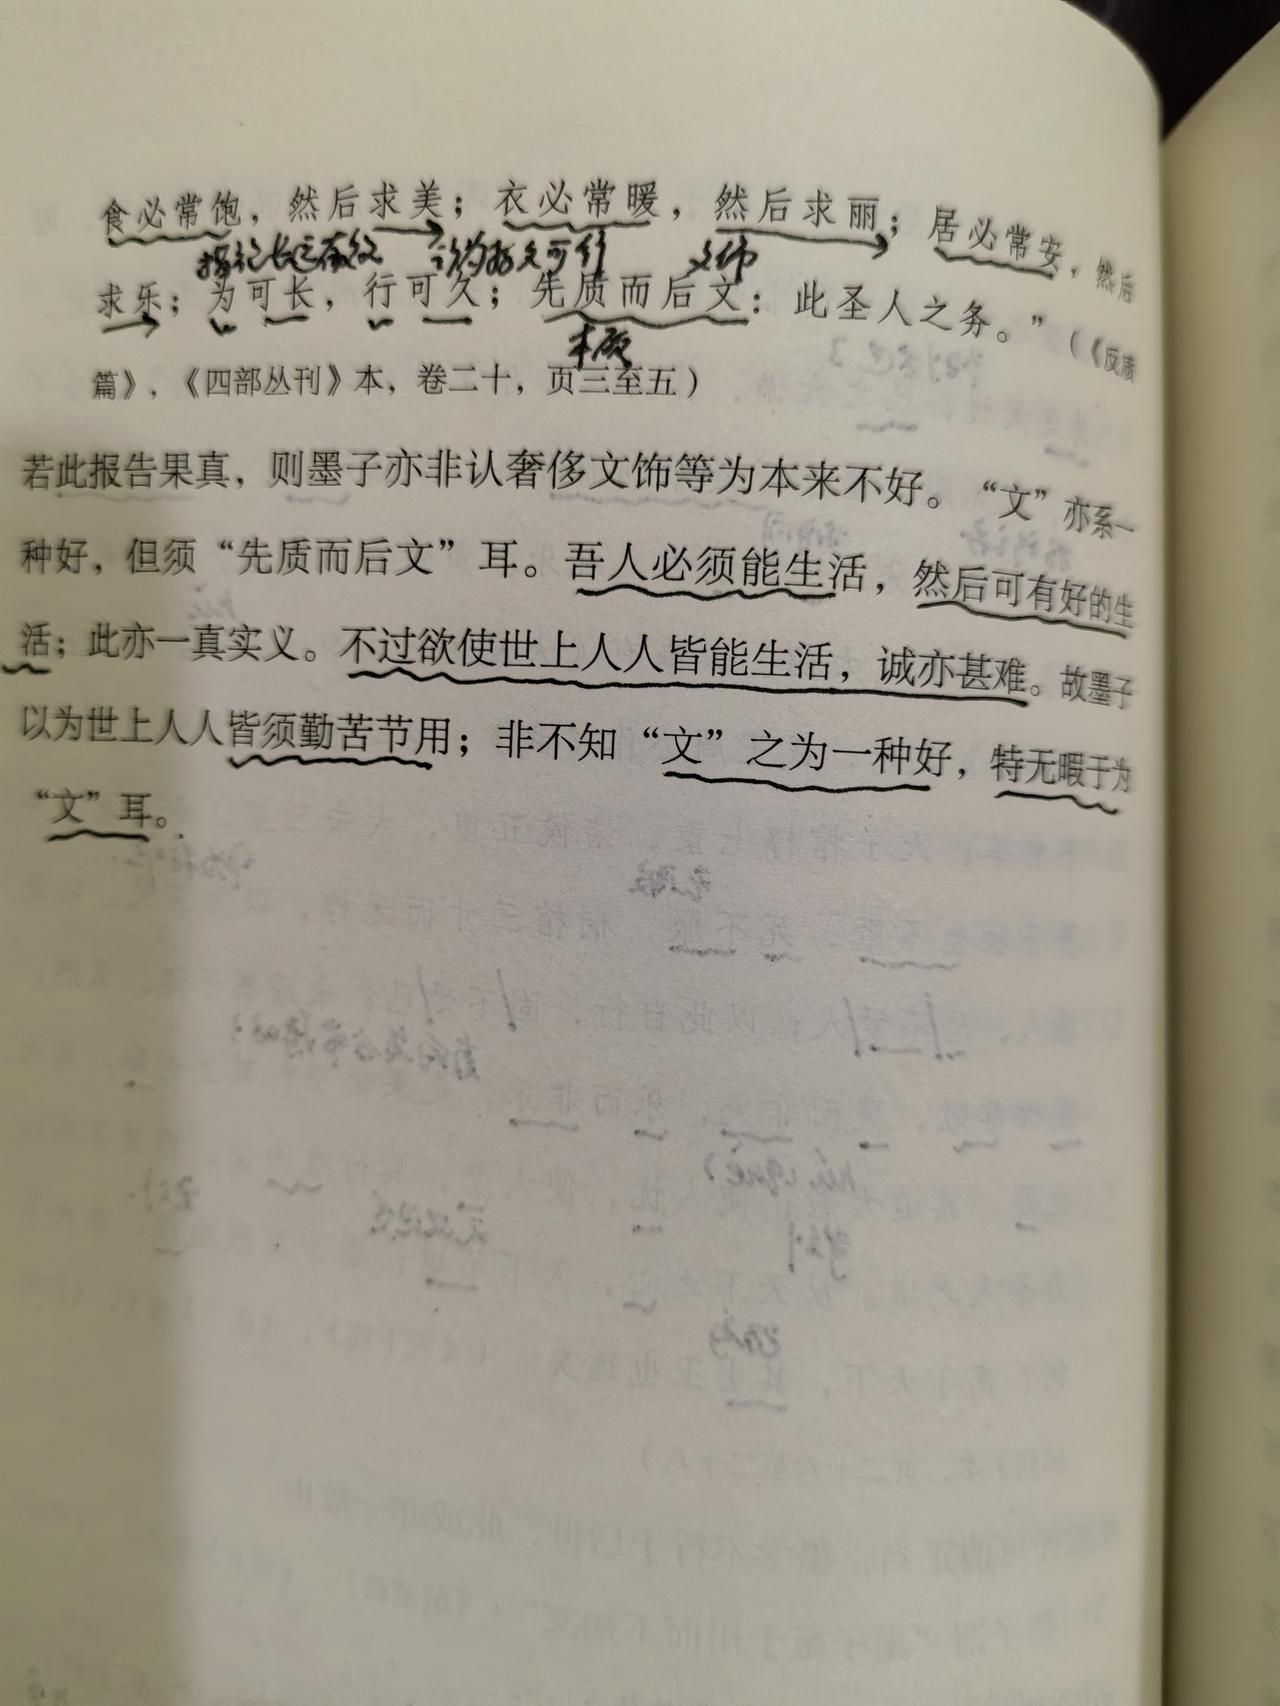 食必常饱，然后求美；衣必常暖，然后求丽；居必常安，然后
文饰
求乐；为可长，行可久；先质而后文：此圣人之务。”（《反质
本质
篇》，《四部丛刊》本，卷二十，页三至五）
若此报告果真，则墨子亦非认奢侈文饰等为本来不好。“文”亦系一
种好，但须“先质而后文”耳。吾人必须能生活，然后可有好的生
活；此亦一真实义。不过欲使世上人人皆能生活，诚亦甚难。故墨子
以为世上人人皆须勤苦节用；非不知“文”之为一种好，特无暇于为
“文”耳。